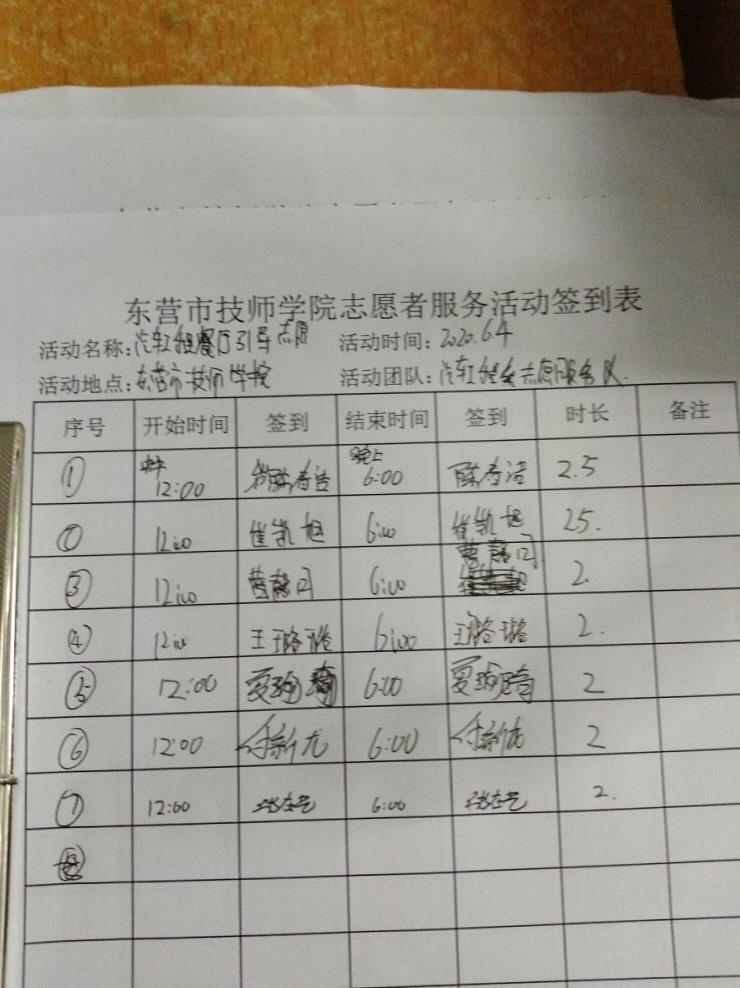 东营市技师学院志愿者服务活动签到表
活动名称:汽车组餐厅引导志愿 活动时间:2020.6.4
活动地点:东营市技师学院 活动团队:汽车组志愿服务队.
序号 开始时间 签到 结束时间 签到 时长 备注
① 12:00 晚上 6:00 2.5
② 12:00 崔凯旭 6:00 崔凯旭 25.
③ 12:00 6:00 2.
④ 12:00 王璐璐 6:00 王璐璐 2.
⑤ 12:00 6:00 2
⑥ 12:00 付新尤 6:00 付新尤 2
⑦ 12:00 6:00 2.